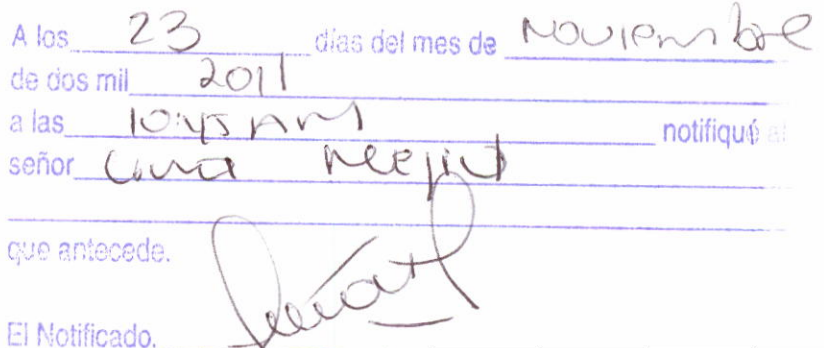 A los 23 días del mes de Noviembre
de dos mil 2011
a las 10:45 AM notifiqué al
señor Mejia
que antecede.
El Notificado.